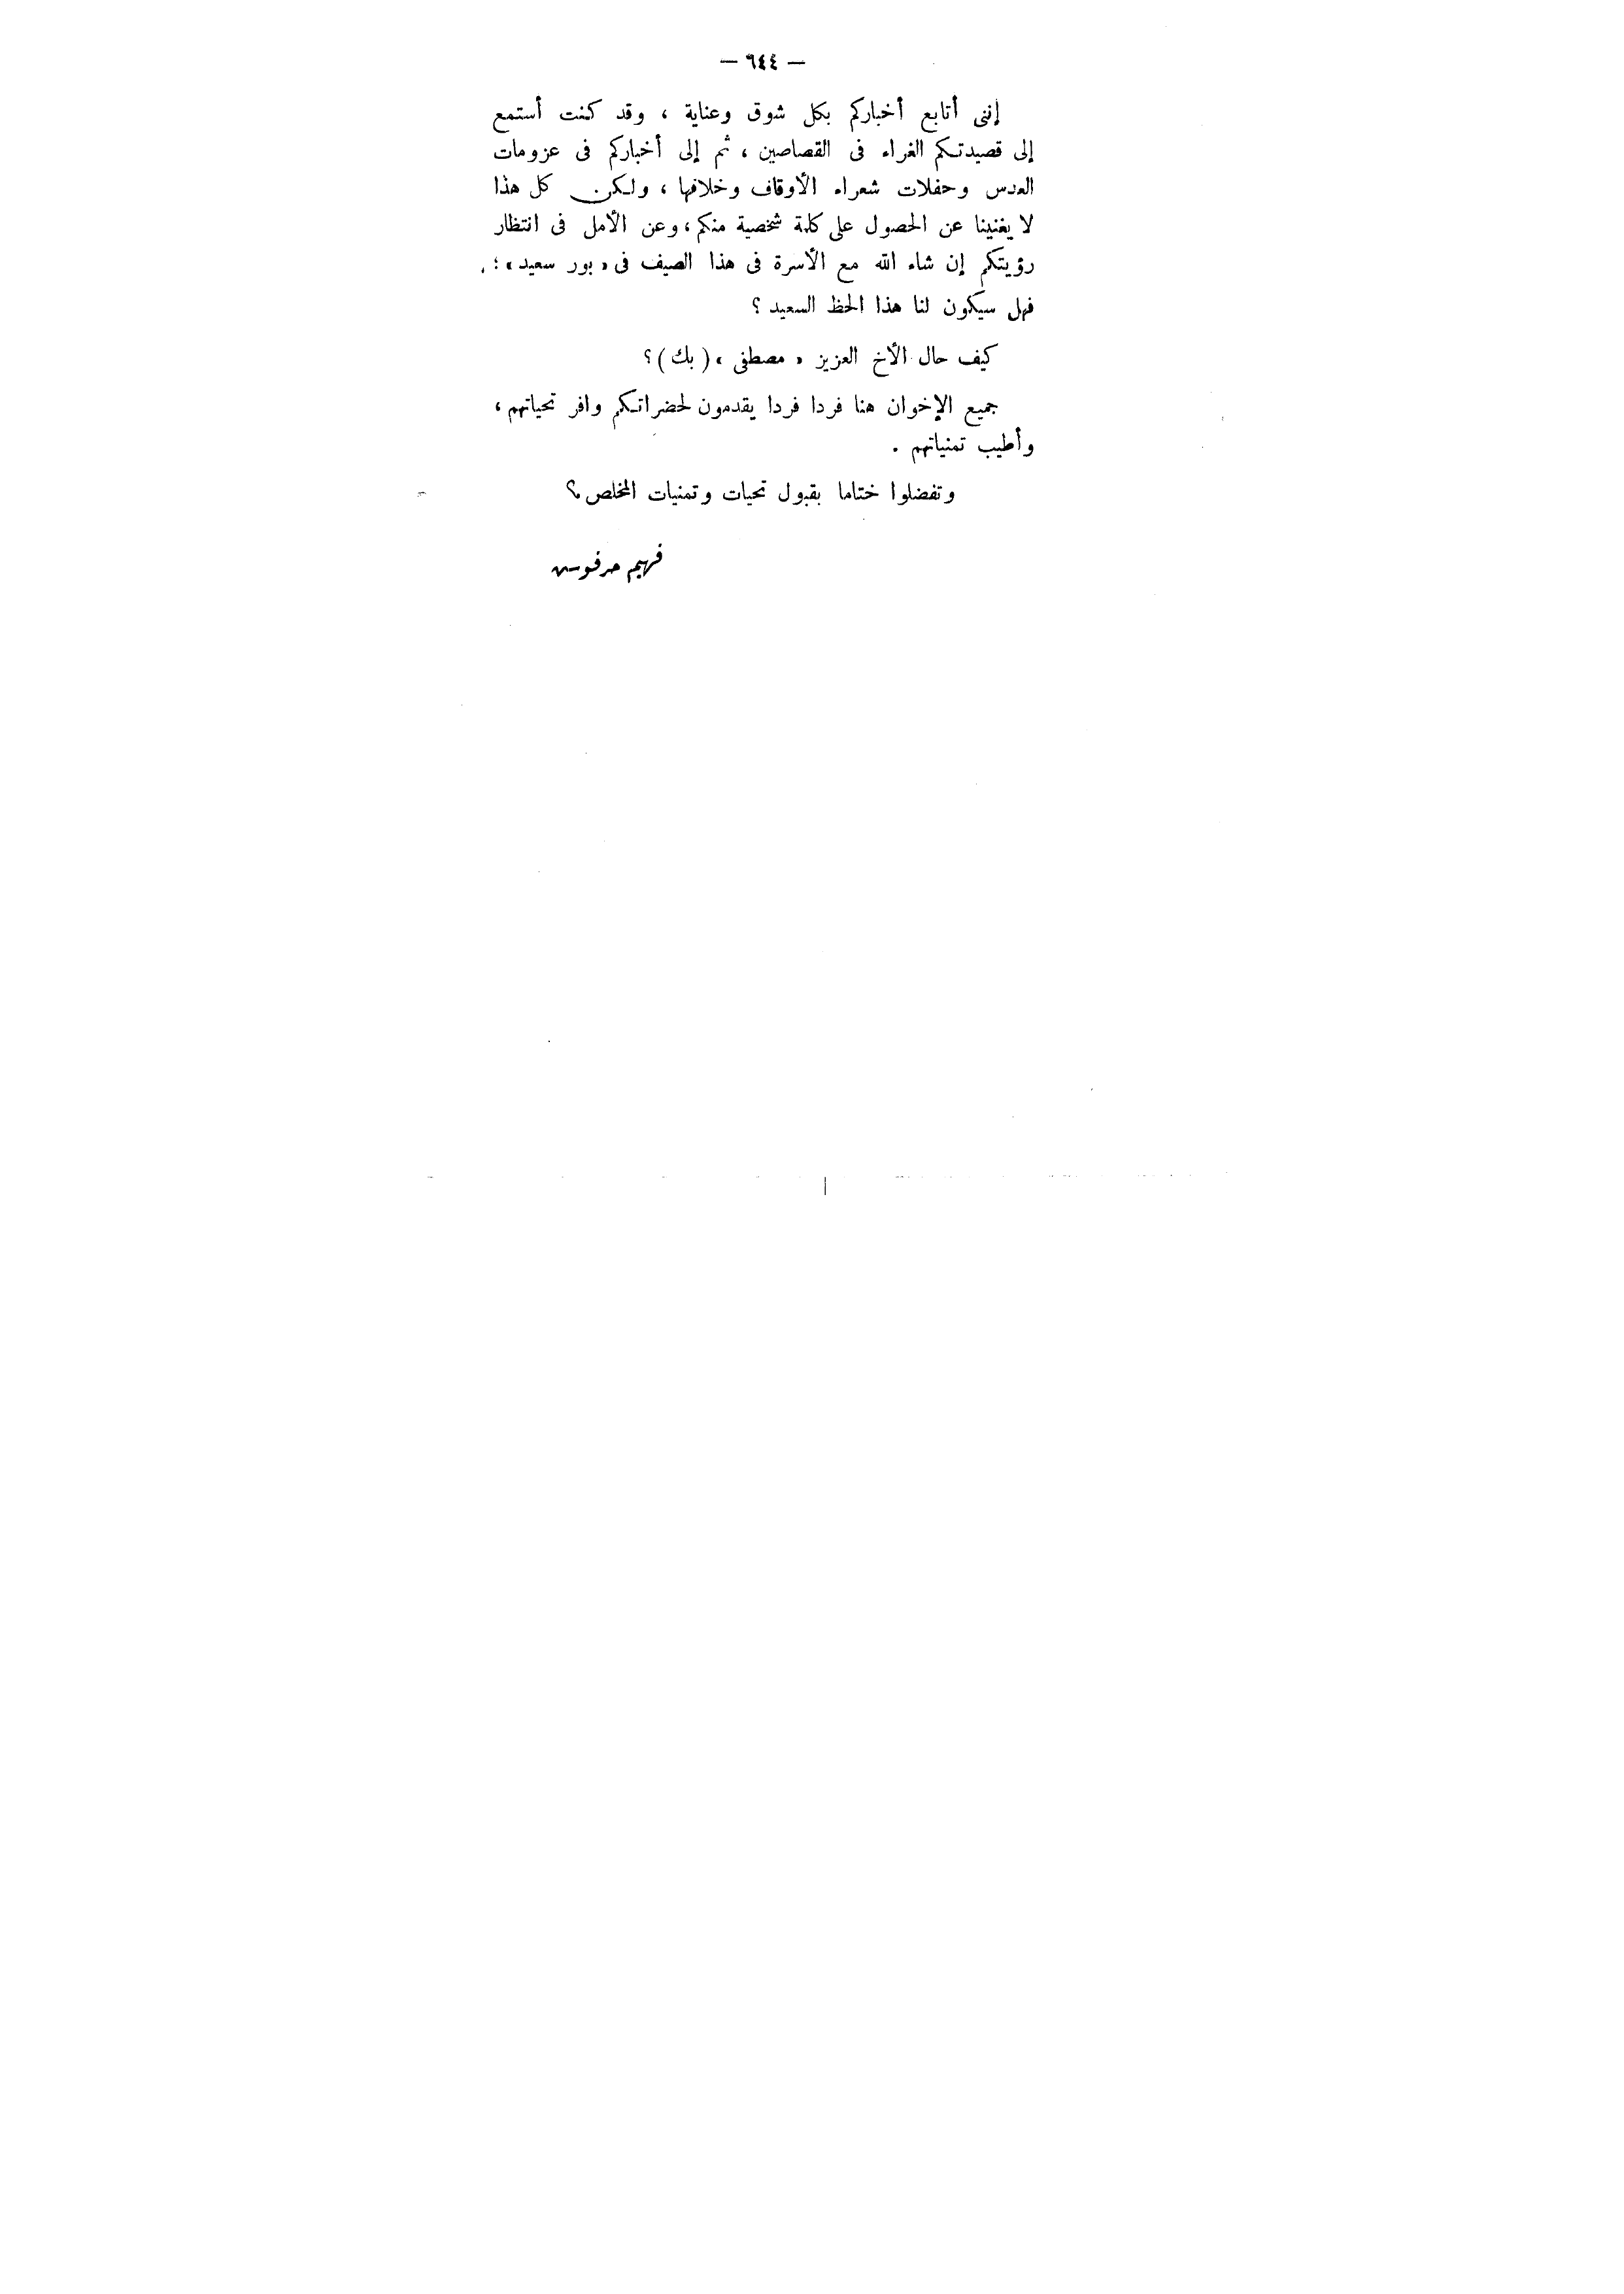 — ٦٤٤ —
إننى أتابع أخباركم بكل شوق وعناية ، وقد كنت أستمع
إلى قصيدتكم الغراء فى القصاصين ، ثم إلى أخباركم فى عزومات
العدس وحفلات شعراء الأوقاف وخلافها ، ولكن كل هذا
لا يغنينا عن الحصول على كلمة شخصية منكم ، وعن الأمل فى انتظار
رؤيتكم إن شاء الله مع الأسرة فى هذا الصيف فى « بور سعيد » ؛
فهل سيكون لنا هذا الحظ السعيد ؟
كيف حال الأخ العزيز « مصطفى » ( بك ) ؟
جميع الإخوان هنا فردا فردا يقدمون لحضراتكم وافر تحياتهم ،
وأطيب تمنياتهم .
وتفضلوا ختاما بقبول تحيات وتمنيات المخلص
فهيم